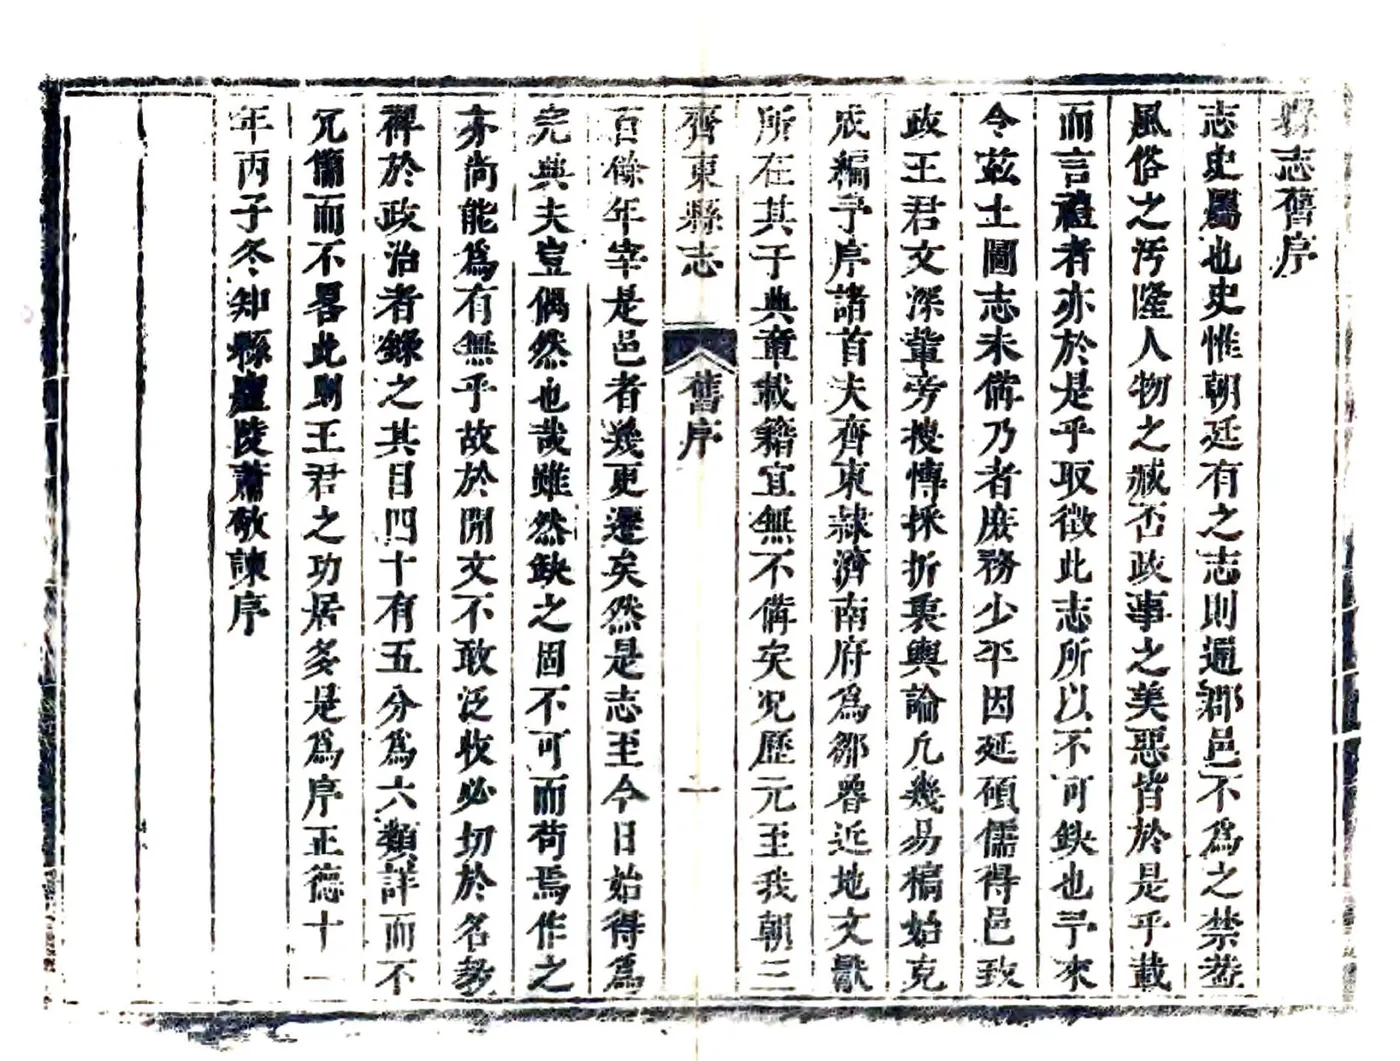 縣志舊序
志史屬也史惟朝廷有之志則遍郡邑不爲之禁葢
風俗之汚隆人物之臧否政事之美惡皆於是乎載
而言禮者亦於是乎取徵此志所以不可缺也予來
令茲土圖志未備乃者庶務少平因延碩儒得邑致
政王君文深輩旁搜博採折衷輿論凡幾易稿始克
成編予序諸首夫齊東隸濟南府爲鄒魯近地文獻
所在其于典章載籍宜無不備矣况歷元至我朝三
齊東縣志
舊序
一
百餘年宰是邑者幾更遷矣然是志至今日始得爲
完典夫豈偶然也哉雖然缺之固不可而苟焉作之
亦尚能爲有無乎故於閒文不敢泛收必切於名教
裨於政治者錄之其目四十有五分爲六類詳而不
冗簡而不畧此則王君之功居多是爲序正德十一
年丙子冬知縣醴陵蕭敬諫序